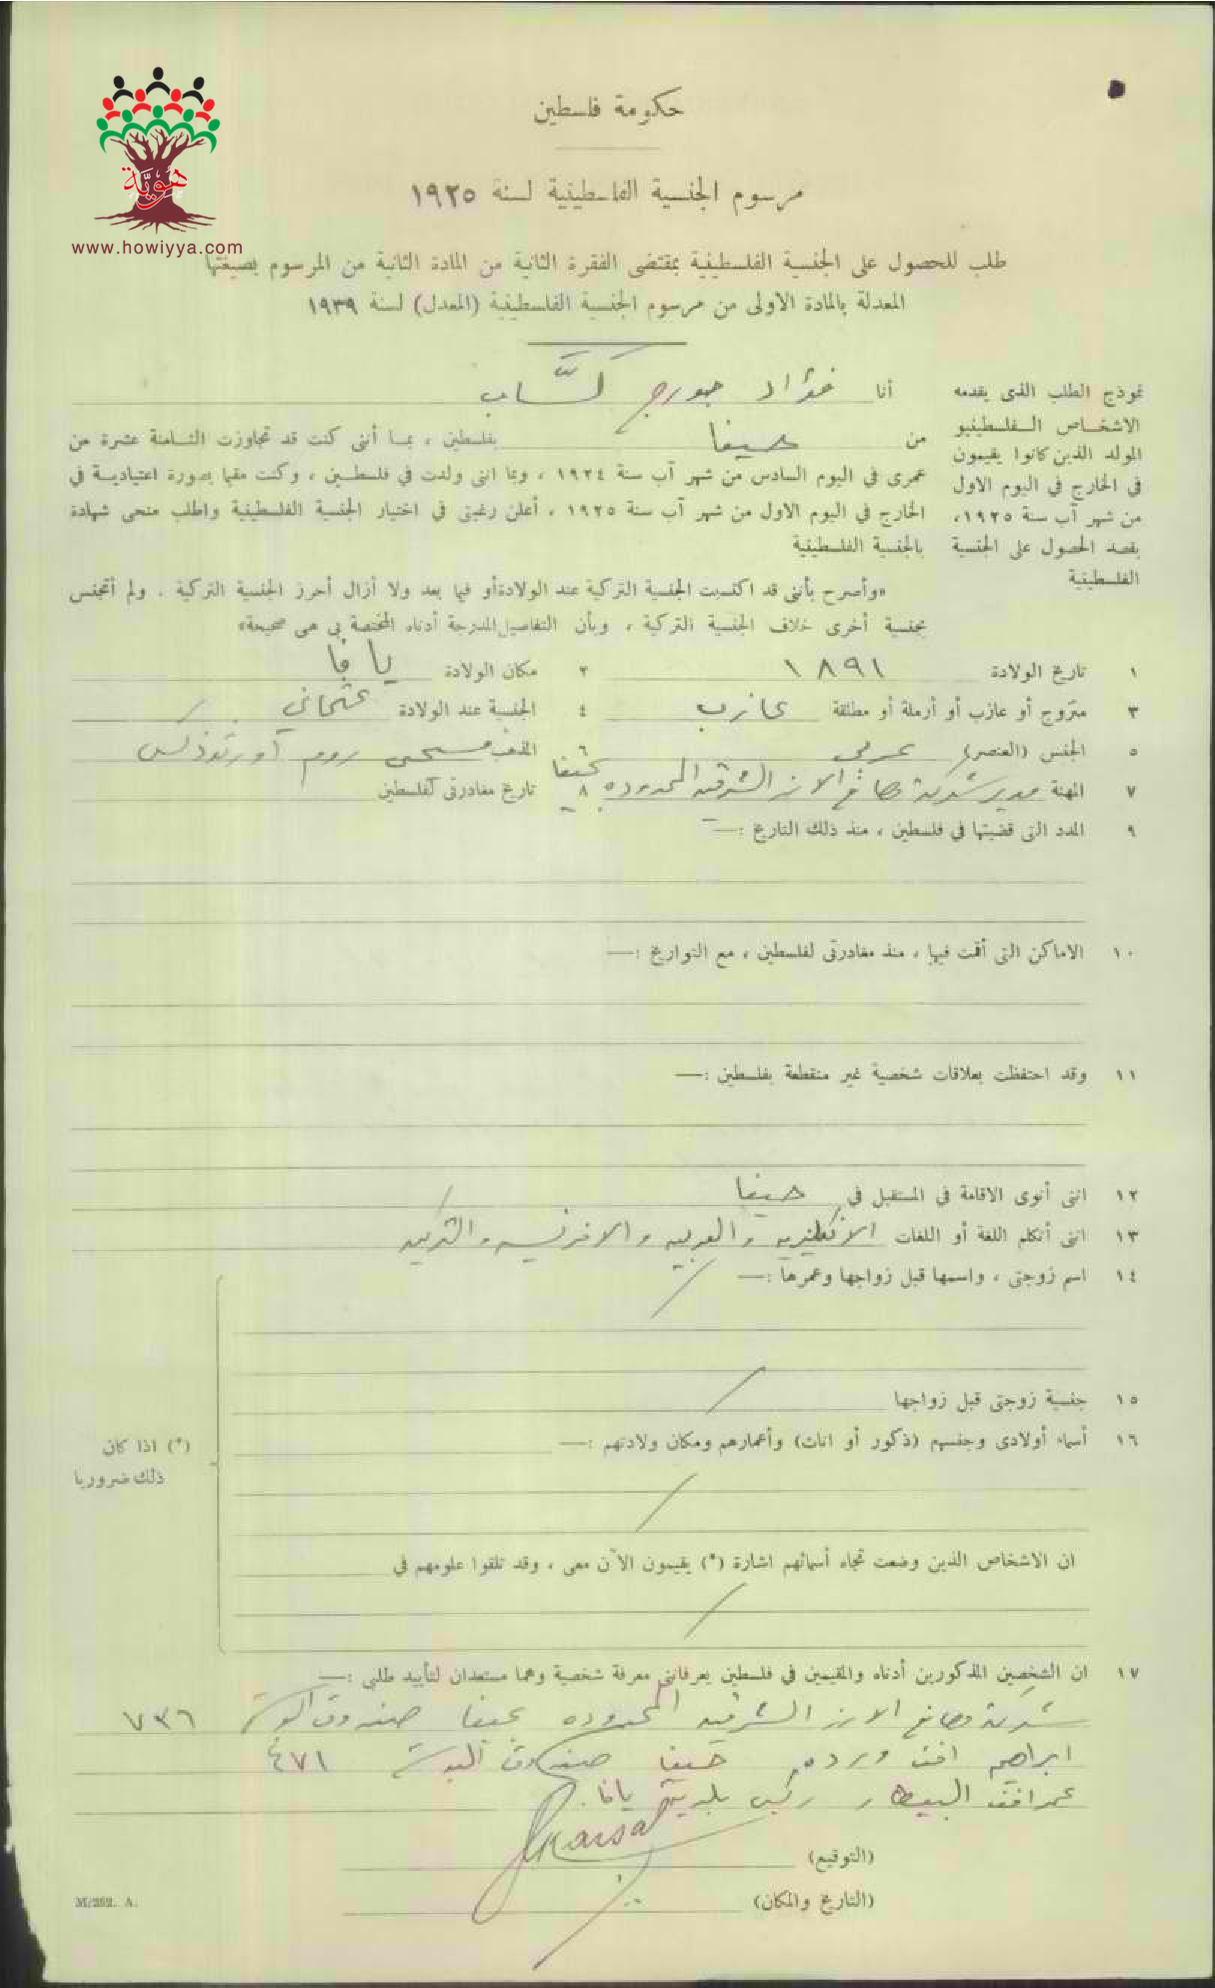 هويّة
www.howiyya.com
حكومة فلسطين
مرسوم الجنسية الفلسطينية لسنة ١٩٢٥
طلب للحصول على الجنسية الفلسطينية بمقتضى الفقرة الثانية من المادة الثانية من المرسوم بصيغتها
المعدلة بالمادة الاولى من مرسوم الجنسية الفلسطينية (المعدل) لسنة ١٩٣٩
نموذج الطلب الذى يقدمه
الاشخاص الفلسطينيو
المولد الذين كانوا يقيمون
فى الخارج فى اليوم الاول
من شهر آب سنة ١٩٢٥،
بقصد الحصول على الجنسية
الفلسطينية
أنا فؤاد جورج كسَّاب
من حيفا بفلسطين ، بما أننى كنت قد تجاوزت الثامنة عشرة من
عمرى فى اليوم السادس من شهر آب سنة ١٩٢٤ ، وبما اننى ولدت في فلسطين ، وكنت مقيما بصورة اعتيادية في
الخارج فى اليوم الاول من شهر آب سنة ١٩٢٥ ، أعلن رغبتى فى اختيار الجنسية الفلسطينية واطلب منحى شهادة
بالجنسية الفلسطينية
«وأصرح بأننى قد اكتسبت الجنسية التركية عند الولادة أو فيما بعد ولا أزال أحرز الجنسية التركية . ولم أتجنس
بجنسية أخرى خلاف الجنسية التركية ، وبأن التفاصيل المدرجة أدناه المختصة بى هى صحيحة»
١ تاريخ الولادة ١٨٩١ ٢ مكان الولادة يافا
٣ متزوج أو عازب أو أرملة أو مطلقة عازب ٤ الجنسية عند الولادة عثماني
٥ الجنس (العنصر) عربي ٦ المذهب مسيحي روم اورثوذكس
٧ المهنة مدير شركة مصانع الارز الشرقية المحدودة بحيفا ٨ تاريخ مغادرتى لفلسطين
٩ المدد التى قضيتها فى فلسطين ، منذ ذلك التاريخ :—
١٠ الاماكن التى أقمت فيها ، منذ مغادرتى لفلسطين ، مع التواريخ :—
١١ وقد احتفظت بعلاقات شخصية غير منقطعة بفلسطين :—
١٢ اننى أنوى الاقامة فى المستقبل فى حيفا
١٣ اننى أتكلم اللغة أو اللغات الانكليزيه والعربيه والافرنسيه والتركيه
١٤ اسم زوجتى ، واسمها قبل زواجها وعمرها :—
١٥ جنسية زوجتى قبل زواجها
١٦ أسماء أولادى وجنسهم (ذكور أو اناث) وأعمارهم ومكان ولادتهم :—
(*) اذا كان
ذلك ضروريا
ان الاشخاص الذين وضعت تجاه أسمائهم اشارة (*) يقيمون الآن معى ، وقد تلقوا علومهم فى
١٧ ان الشخصين المذكورين أدناه والمقيمين فى فلسطين يعرفاننى معرفة شخصية وهما مستعدان لتأييد طلبى :—
شركة مصانع الارز الشرقيه المحدوده بحيفا صندوق البوستة ٧٣٦
ابراهيم افندي ورده حيفا صندوق البوستة
عمر افندي البيطار رئيس بلدية يافا.
(التوقيع)
(التاريخ والمكان)
M/262. A.